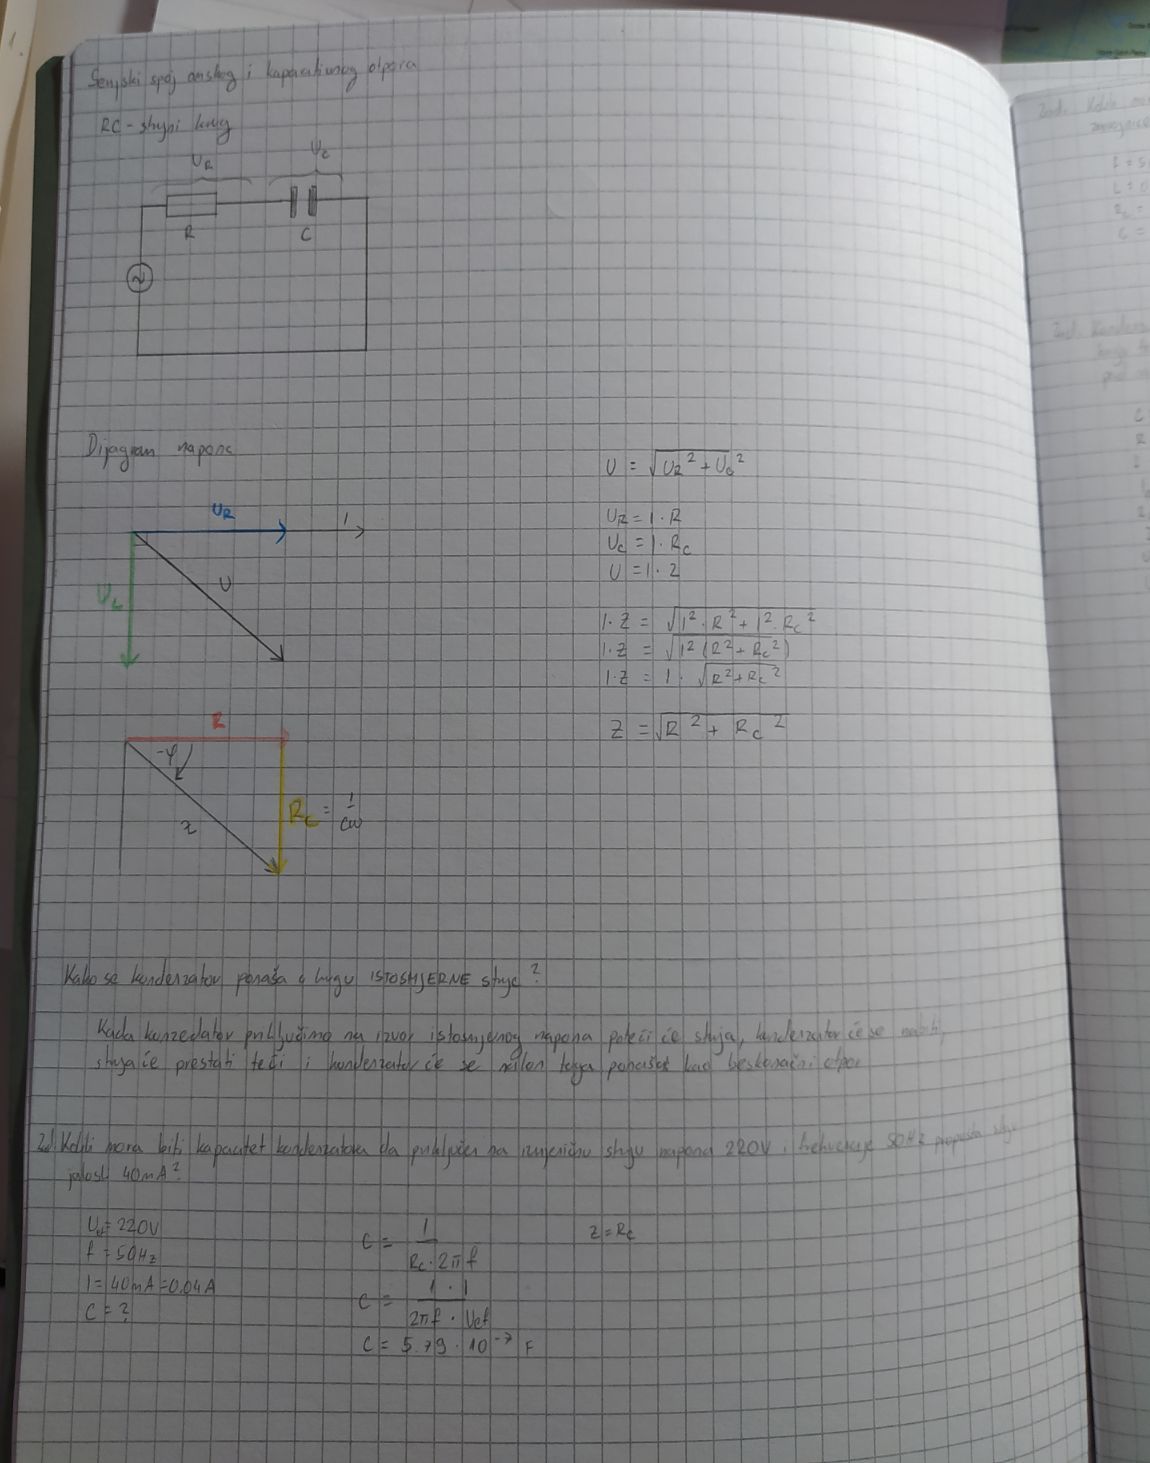 Serijski spoj omskog i kapacitivnog otpora
RC - strujni krug
UR
UC
R
C
Dijagram napona
U = √UR² + UC²
UR
I
UR = I · R
UC = I · RC
U = I · Z
UC
U
I · Z = √I² · R² + I² · RC²
I · Z = √I² (R² + RC²)
I · Z = I · √R² + RC²
R
Z = √R² + RC²
-φ
z
RC = 1/Cω
Kako se kondenzator ponaša u krugu ISTOSMJERNE struje?
Kada konzedator priključimo na izvor istosmjernog napona poteći će struja, kondenzator će se nabiti,
struja će prestati teći i kondenzator će se nakon toga ponašat kao beskonačni otpor
Zad Koliki mora biti kapacitet kondenzatora da priključen na izmjeničnu struju napona 220V i frekvencije 50Hz propusta struju
jakosti 40mA?
Uef = 220V
f = 50Hz
I = 40mA = 0.04A
C = ?
C = 1/RC · 2πf
z = RC
C = 1 · I/2πf · Uef
C = 5.79 · 10⁻⁷ F
Zad. Koliki
I = 5
L = 0
RC =
C =
Zad. Kondenz
C
R